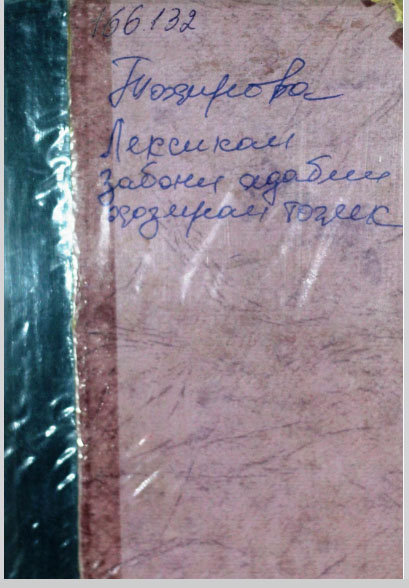 Тоҳирова
Лексикаи
забони адабии
ҳозираи тоҷик